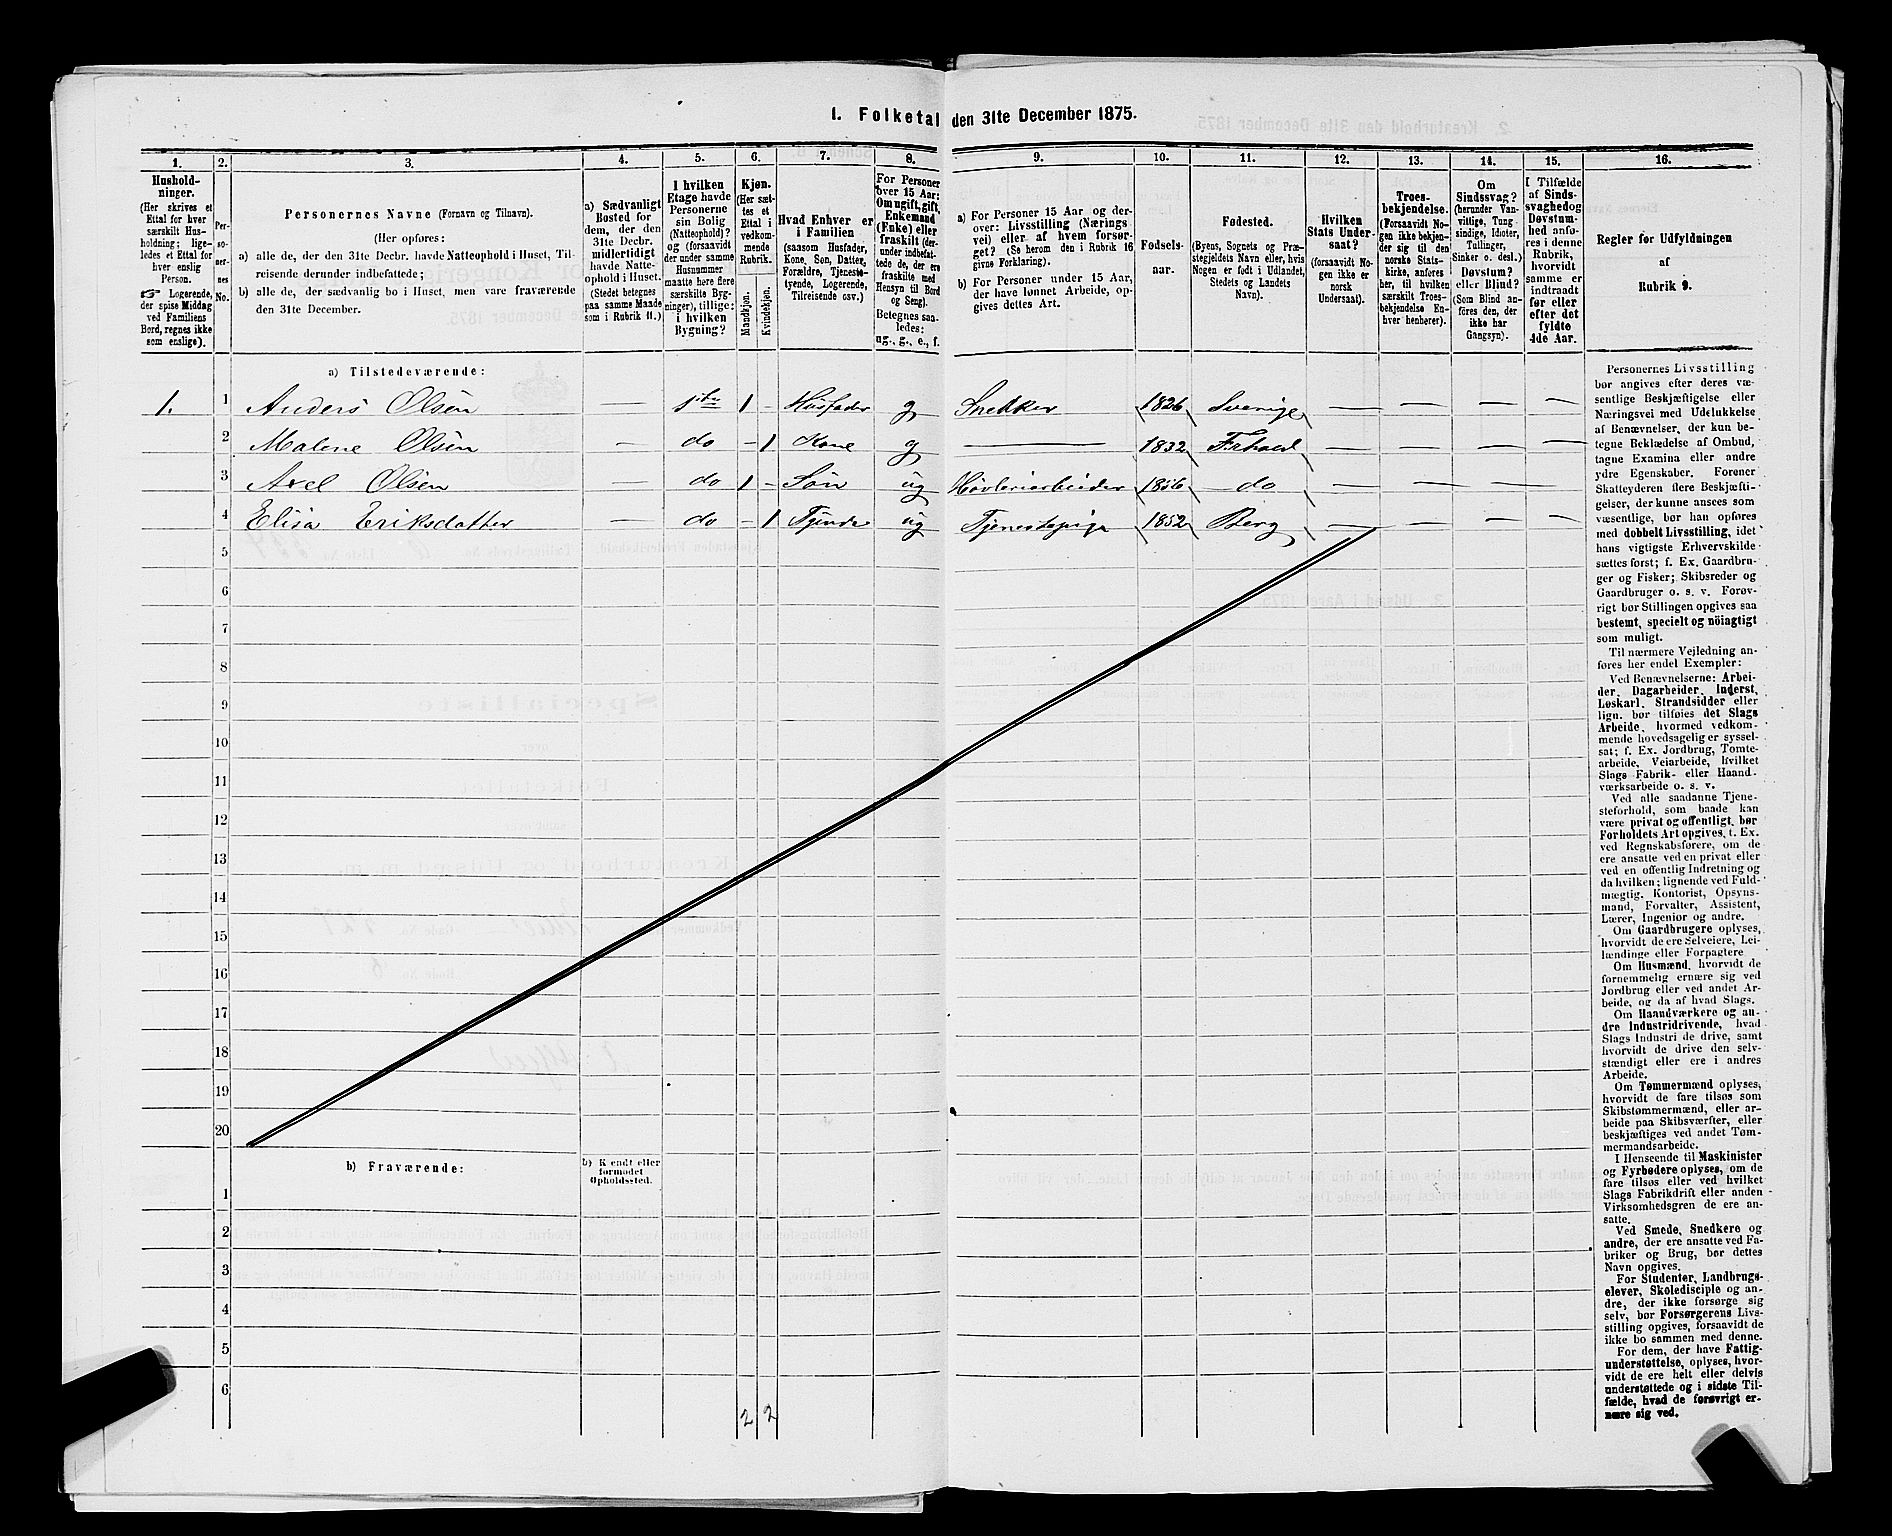 1. Folketal den 31te December 1875.
1. 2. 3. 4. 5. 6. 7. 8. 9. 10. 11. 12. 13. 14. 15. 16.
Hushold-
ninger.
(Her skrives et
Ettal for hver
særskilt Hus-
holdning; lige-
ledes et Ettal for
hver enslig
Person.
☞ Logerende,
der spise Middag
ved Familiens
Bord, regnes ikke
som enslige).
Per-
so-
ner-
nes
No.
Personernes Navne (Fornavn og Tilnavn).
(Her opføres:
a) alle de, der den 31te Decbr. havde Natteophold i Huset, Til-
reisende derunder indbefattede;
b) alle de, der sædvanlig bo i Huset, men vare fraværende
den 31te December.
a) Sædvanligt
Bosted for
dem, der den
31te Decbr.
midlertidigt
havde Natte-
ophold i Huset.
(Stedet betegnes
paa samme Maade
som i Rubrik 11.)
I hvilken
Etage havde
Personerne
sin Bolig
(Natteophold)?
og (forsaavidt
der under samme
Husnummer
maatte høre flere
særskilte Byg-
ninger), tillige:
i hvilken
Bygning?
Kjøn.
(Her sæt-
tes et
Ettal i
vedkom-
mende
Rubrik.
Mandkjøn.
Kvindekjøn.
Hvad Enhver er
i Familien
(saasom Husfader,
Kone, Søn, Datter,
Forældre, Tjeneste-
tyende, Logerende,
Tilreisende osv.)
For Personer
over 15 Aar:
Om ugift, gift,
Enkemand
(Enke) eller
fraskilt (der-
under indbefat-
tede de, der ere
fraskilte med
Hensyn til Bord
og Seng).
Betegnes saa-
ledes:
ug., g., e., f.
a) For Personer 15 Aar og der-
over: Livsstilling (Nærings
vei) eller af hvem forsør-
get? (Se herom den i Rubrik 16
givne Forklaring).
b) For Personer under 15 Aar,
der have lønnet Arbeide, op-
gives dettes Art.
Fødsels-
aar.
Fødested.
(Byens, Sognets og Præ-
stegjeldets Navn eller, hvis
Nogen er født i Udlandet,
Stedets og Landets
Navn).
Hvilken
Stats Under-
saat?
(forsaavidt No-
gen ikke er
norsk
Undersaat).
Troes-
bekjendelse.
(Forsaavidt No-
gen ikke bekjen-
der sig til den
norske Stats-
kirke, anføres
her, til hvilken
særskilt Troes-
bekjendelse En-
hver henhører).
Om
Sindssvag?
(herunder Van-
vittige, Tung-
sindige, Idioter,
Tullinger,
Sinker o. desl.)
Døvstum?
eller Blind?
(Som Blind an-
føres den, der
ikke har
Gangsyn).
I Tilfælde
af Sinds-
svaghed og
Døvstum-
hed anfø-
res i denne
Rubrik,
hvorvidt
samme er
indtraadt
før eller
efter det
fyldte
4de Aar.
Regler for Udfyldningen
af
Rubrik 9.
a) Tilstedeværende:
1. 1 Anders Olsen — 1ste 1 – Husfader g Snedker 1826 Sverige — — — —
2 Malene Olsen — do – 1 Kone g — 1832 Frhald — — — —
3 Axel Olsen — do 1 – Søn ug Høvleriarbeider 1856 do — — — —
4 Elisa Eriksdatter — do – 1 Tjende ug Tjenestepige 1852 Berg — — — —
5
6
7
8
9
10
11
12
13
14
15
16
17
18
19
20
b) Fraværende:
b) Kjendt eller
formodet
Opholdssted.
1
2
3
4
5
6
2 2
Personernes Livsstilling
bør angives efter deres væ-
sentlige Beskjæftigelse eller
Næringsvei med Udelukkelse
af Benævnelser, der kun be-
tegne Beklædelse af Ombud,
tagne Examina eller andre
ydre Egenskaber. Forener
Skatteyderen flere Beskjæfti-
gelser, der kunne ansees som
væsentlige, bør han opføres
med dobbelt Livsstilling, idet
hans vigtigste Erhvervskilde
sættes først; f. Ex. Gaardbru-
ger og Fisker; Skibsreder og
Gaardbruger o. s. v. Forøv-
rigt bør Stillingen opgives saa
bestemt, specielt og nöiagtigt
som muligt.
Til nærmere Vejledning an-
føres her endel Exempler:
Ved Benævnelserne: Arbei-
der, Dagarbeider, Inderst,
Løskarl, Strandsidder eller
lign. bør tilføies det Slags
Arbeide, hvormed vedkom-
mende hovedsagelig er syssel-
sat; f. Ex. Jordbrug, Tomte-
arbeide, Veiarbeide, hvilket
Slags Fabrik- eller Haand-
værksarbeide o. s. v.
Ved alle saadanne Tjene-
steforhold, som baade kan
være privat og offentligt, bør
Forholdets Art opgives, t. Ex.
ved Regnskabsførere, om de
ere ansatte ved en privat eller
ved en offentlig Indretning og
da hvilken; lignende ved Fuld-
mægtig, Kontorist, Opsyns-
mand, Forvalter, Assistent,
Lærer, Ingeniør og andre.
Om Gaardbrugere oplyses,
hvorvidt de ere Selveiere, Lei-
lændinge eller Forpagtere
Om Husmænd, hvorvidt de
fornemmelig ernære sig ved
Jordbrug eller ved andet Ar-
beide, og da af hvad Slags.
Om Haandværkere og an-
dre Industridrivende, hvad
Slags Industri de drive, samt
hvorvidt de drive den selv-
stændigt eller ere i andres
Arbeide.
Om Tømmermænd oplyses,
hvorvidt de fare tilsøs som
Skibstømmermænd, eller ar-
beide paa Skibsværfter, eller
beskjæftiges ved andet Tøm-
mermandsarbeide.
I Henseende til Maskinister
og Fyrbødere oplyses, om de
fare tilsøs eller ved hvilket
Slags Fabrikdrift eller anden
Virksomhedsgren de ere an-
satte.
Ved Smede, Snedkere og
andre, der ere ansatte ved Fa-
briker og Brug, bør dettes
Navn opgives.
For Studenter, Landbrugs-
elever, Skoledisciple og an-
dre, der ikke forsørge sig
selv, bør Forsørgerens Livs-
stilling opgives, forsaavidt de
ikke bo sammen med denne.
For dem, der have Fattig-
understøttelse, oplyses, hvor-
vidt de ere helt eller delvis
understøttede og i sidste Til-
fælde, hvad de forøvrigt er-
nære sig ved.